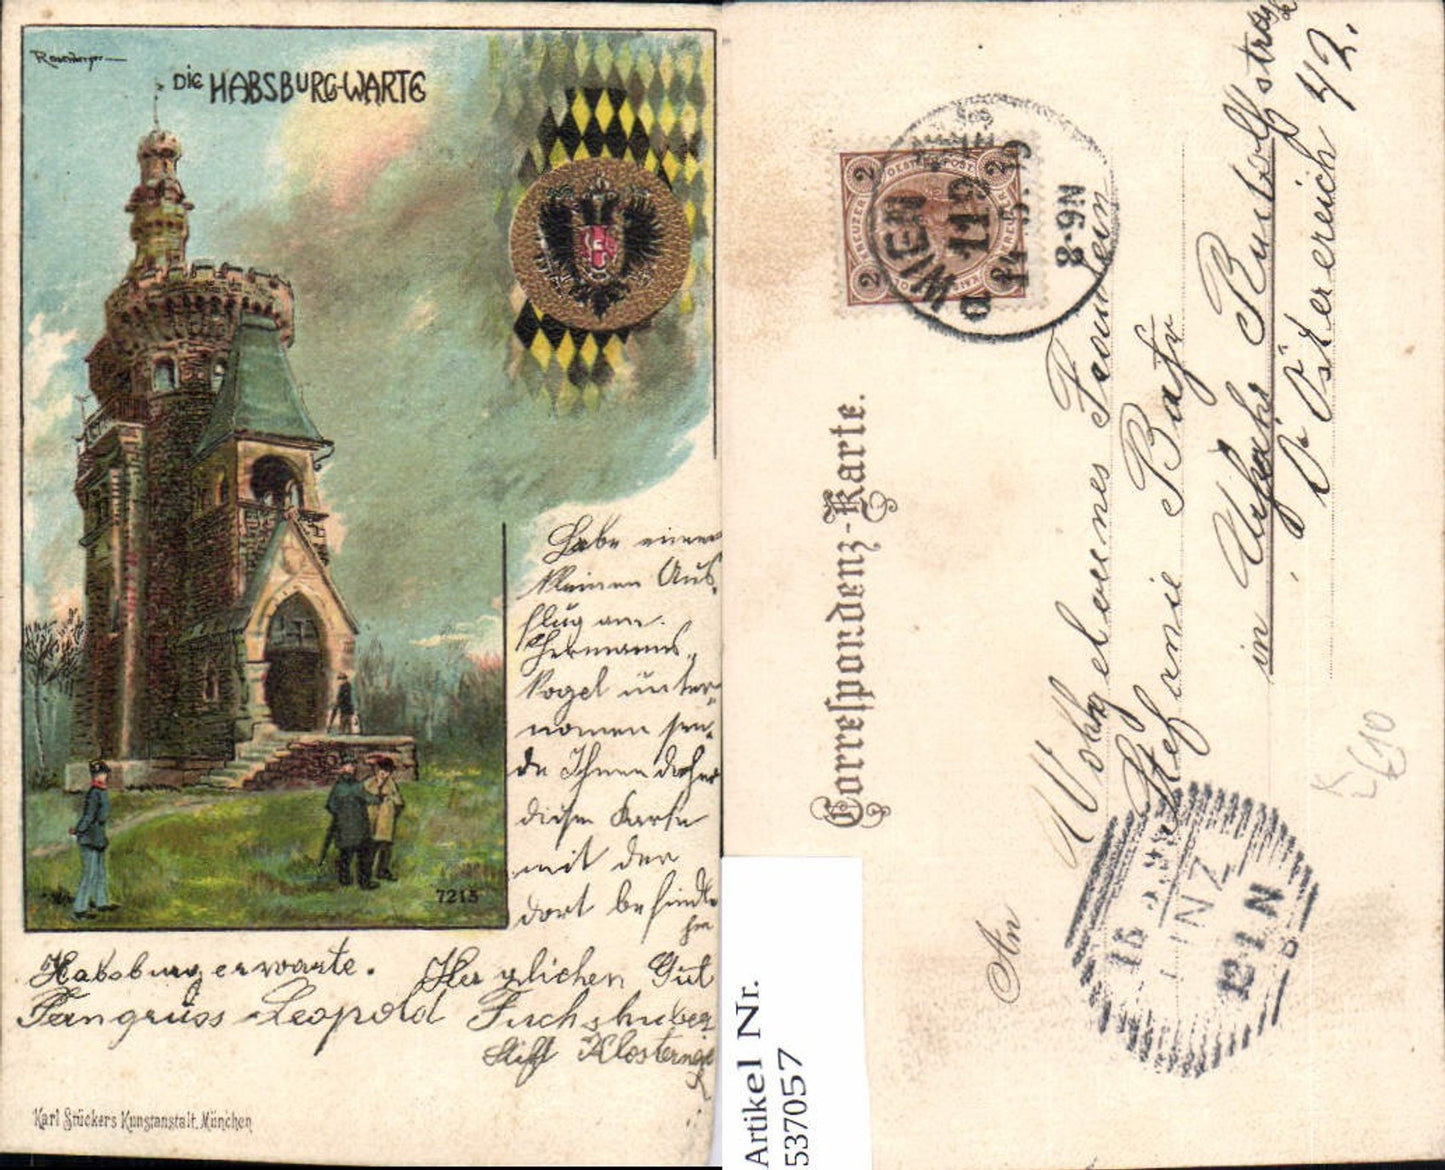 DIE HABSBURG-WARTE
Habe einen
kleinen Aus-
flug am
Hermanns-
kogel unter-
nomen sen-
de Ihnen daher
diese Karte
mit der
dort befindli
7215
Habsburgerwarte. Herzlichen Gut
Ferngruss Leopold Fuchshuber
Stift Klosterneu
Karl Stückers Kunstanstalt, München
Correspondenz-Karte.
2 KREUZER
WIEN
8-9N
An
Wohlgelounes Fräulein
Stefanie Bahr
in Urfahr Rudolfstraße
Österreich 42.
LINZ
12-1N
€10
Artikel Nr.
537057